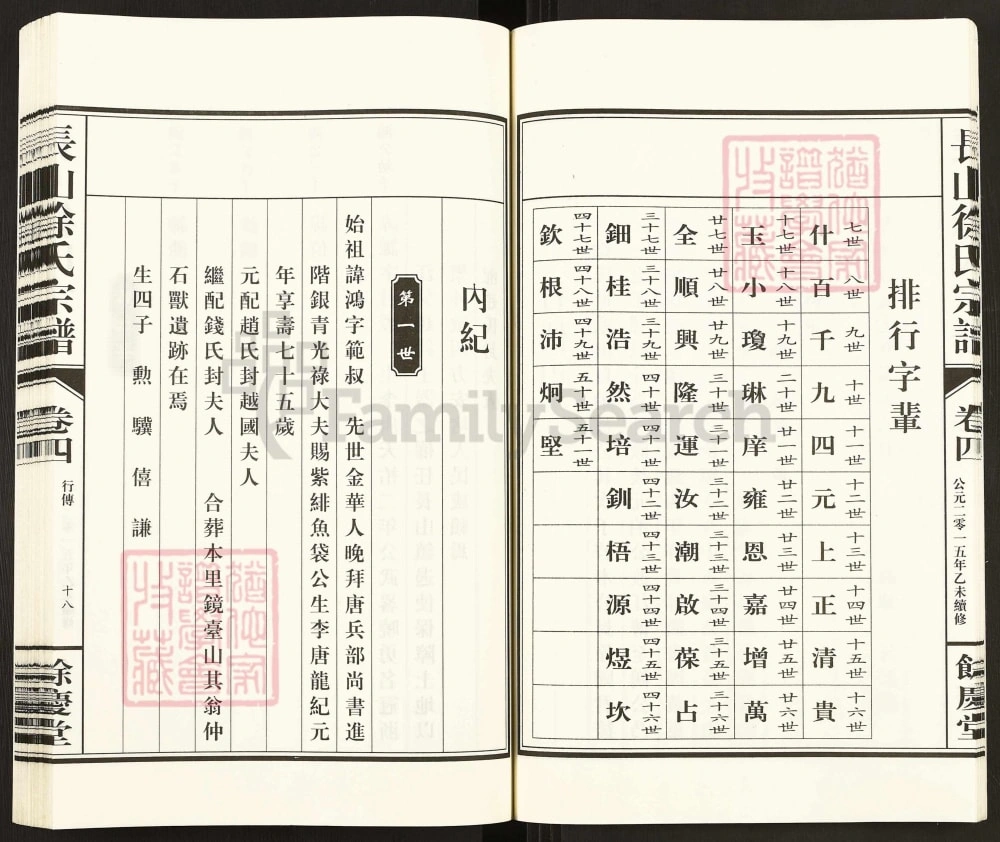 長山徐氏宗譜
卷四
公元二零一五年乙未續修
餘慶堂
排行字輩
七世 什 八世 百 九世 千 十世 九 十一世 四 十二世 元 十三世 上 十四世 正 十五世 清 十六世 貴
十七世 玉 十八世 小 十九世 瓊 二十世 琳 廿一世 庠 廿二世 雍 廿三世 恩 廿四世 嘉 廿五世 增 廿六世 萬
廿七世 全 廿八世 順 廿九世 興 三十世 隆 三十一世 運 三十二世 汝 三十三世 潮 三十四世 啟 三十五世 葆 三十六世 占
三十七世 鈿 三十八世 桂 三十九世 浩 四十世 然 四十一世 培 四十二世 釧 四十三世 梧 四十四世 源 四十五世 煜 四十六世 坎
四十七世 欽 四十八世 根 四十九世 沛 五十世 炯 五十一世 堅
內紀
第一世
始祖諱鴻字範叔 先世金華人晚拜唐兵部尚書進
階銀青光祿大夫賜紫緋魚袋公生李唐龍紀元
年享壽七十五歲
元配趙氏封越國夫人
繼配錢氏封夫人 合葬本里鏡臺山其翁仲
石獸遺跡在焉
生四子 勲 驥 僖 謙
長山徐氏宗譜
卷四
行傳
十八
餘慶堂
FamilySearch